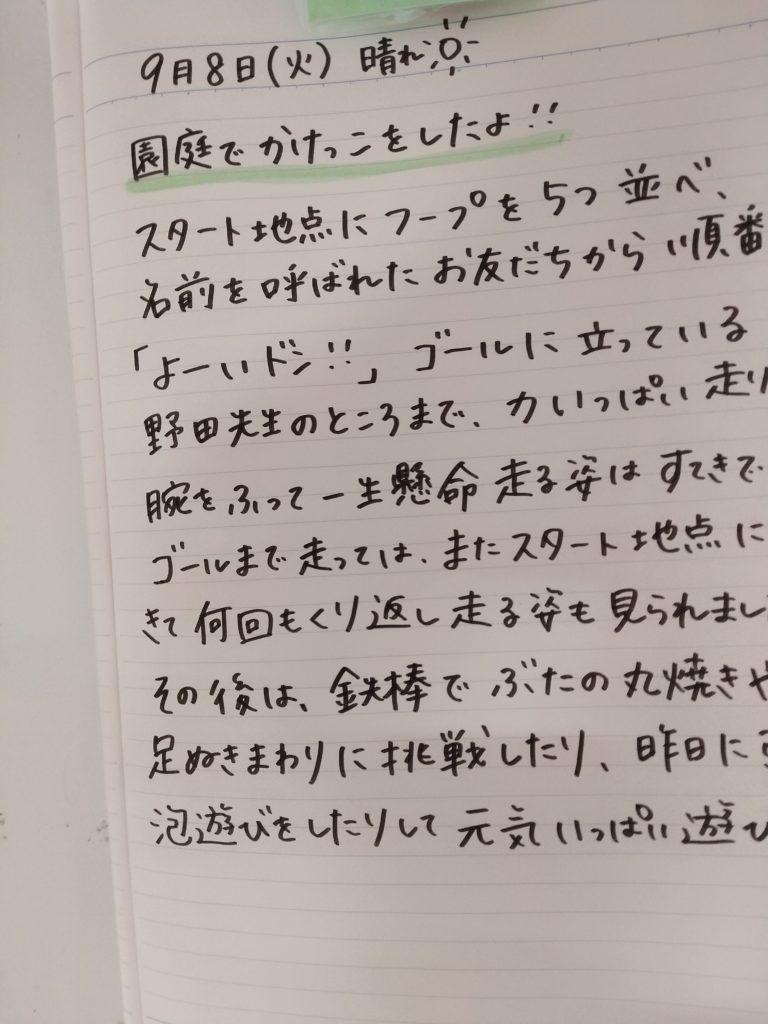 9月8日(火) 晴れ
園庭でかけっこをしたよ!!
スタート地点にフープを5つ並べ、
名前を呼ばれたお友だちから順番
「よーいドン!!」ゴールに立っている
野田先生のところまで、力いっぱい走り
腕をふって一生懸命走る姿はすてきで
ゴールまで走っては、またスタート地点に
きて何回もくり返し走る姿も見られまし
その後は、鉄棒でぶたの丸焼きや
足ぬきまわりに挑戦したり、昨日に
泡遊びをしたりして元気いっぱい遊び